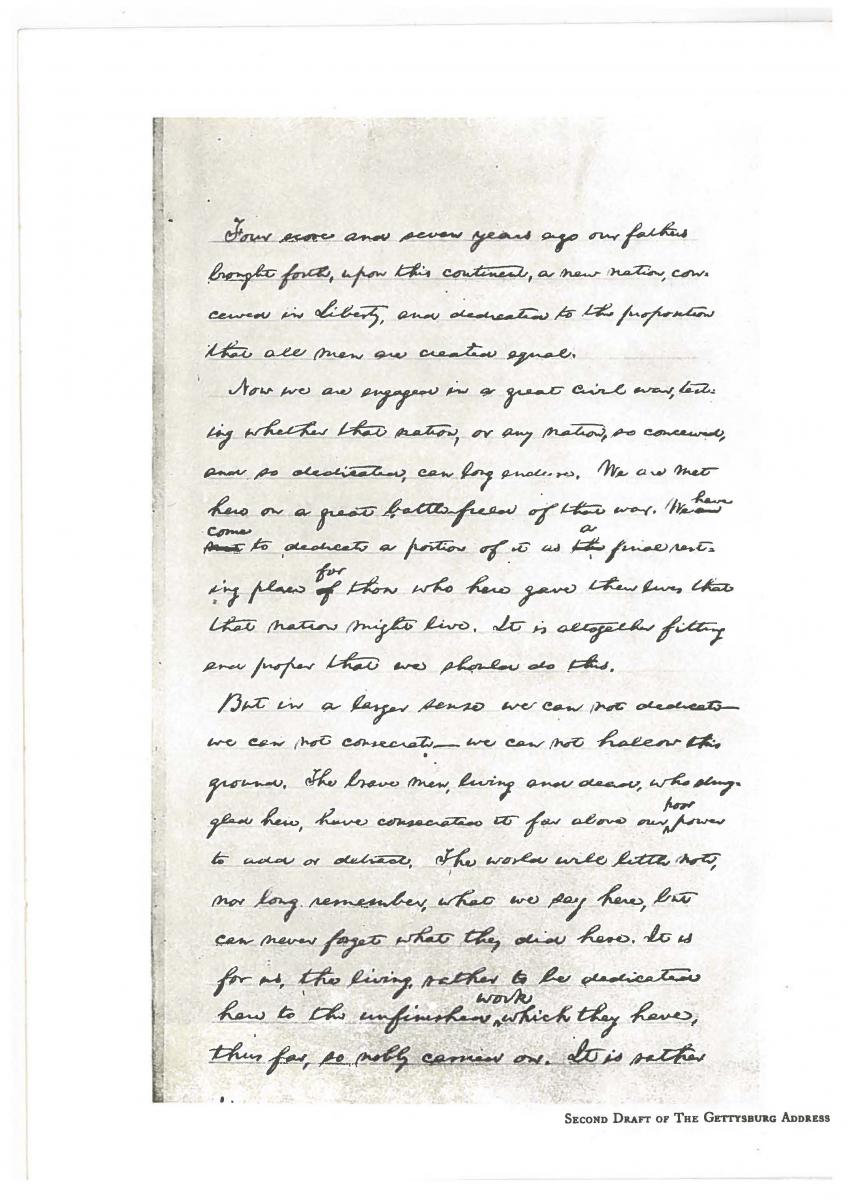 Four score and seven years ago our fathers
brought forth, upon this continent, a new nation, con-
ceived in Liberty, and dedicated to the proposition
that all men are created equal.
Now we are engaged in a great civil war, test-
ing whether that nation, or any nation, so conceived,
and so dedicated, can long endure. We are met
here on a great battle-field of that war. We are have
come
met to dedicate a portion of it as the a final rest-
ing place of for those who here gave their lives that
that nation might live. It is altogether fitting
and proper that we should do this.
But in a larger sense we can not dedicate—
we can not consecrate—we can not hallow this
ground. The brave men, living and dead, who strug-
gled here, have consecrated it far above our poor power
to add or detract. The world will little note,
nor long remember, what we say here, but
can never forget what they did here. It is
for us, the living, rather to be dedicated
here to the unfinished work which they have,
thus far, so nobly carried on. It is rather
SECOND DRAFT OF THE GETTYSBURG ADDRESS